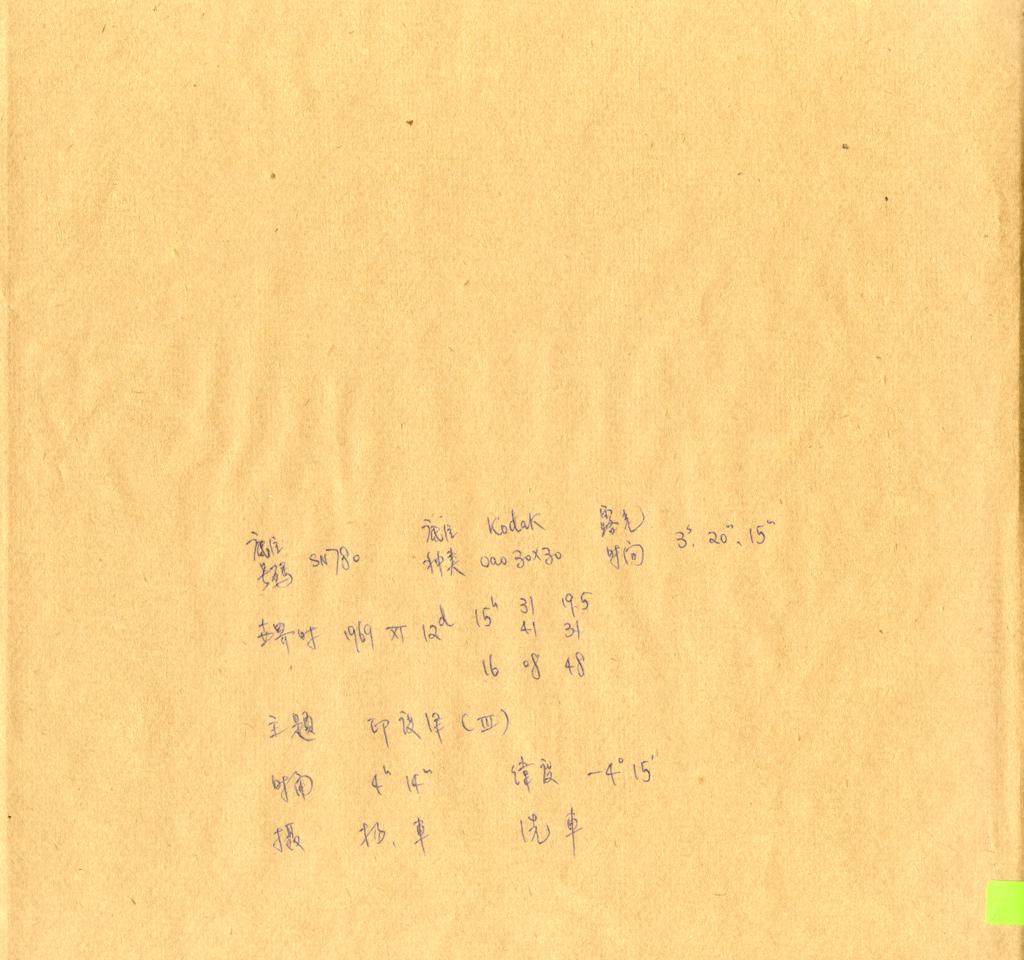 底片号码 SN780 底片种类 Kodak 0a0 30×30 露光时间 3ˢ. 20ᵐ、15ᵐ
世界时 1969 XI 12ᵈ 15ʰ 31 19.5
41 31
16 08 48
主题 印度洋(III)
时角 4ʰ 14ᵐ 纬度 -4° 15′
摄 杨、車 洗 車